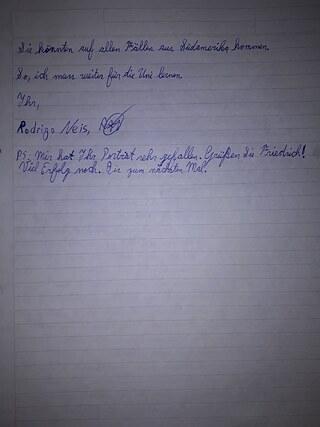 Sie könnten auf allen Fällen aus Südamerika kommen.
So, ich muss weiter für die Uni lernen.
Ihr,
Rodrigo Neis,
PS: Mir hat Ihr Porträt sehr gefallen. Grüßen Sie Friedrich!
Viel Erfolg noch. Bis zum nächsten Mal.